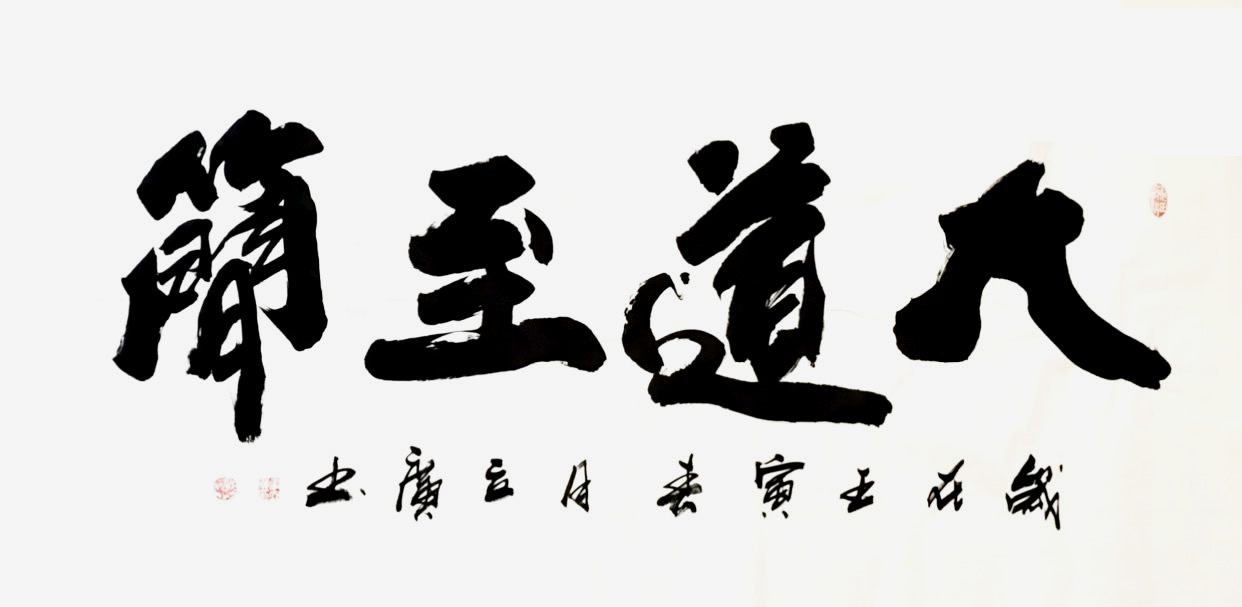 大道至簡
歲在壬寅春月立廣书